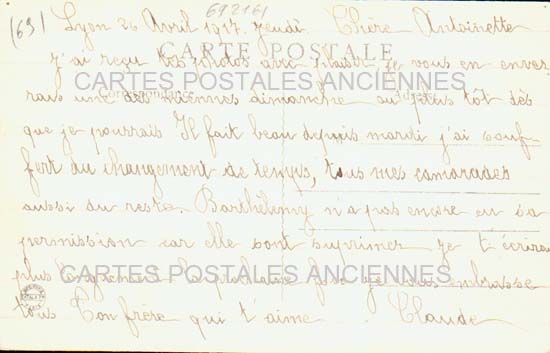 (69)
69216
Lyon 26 Avril 1917. Jeudi Chère Antoinette
CARTE POSTALE
J'ai reçu tes photos avec plaisir je vous en enver
CARTES POSTALES ANCIENNES
rais une des miennes dimanche ou plus tôt dès
Correspondance
que je pourrais Il fait beau depuis mardi j'ai souf
fert du changement de temps, tous mes camarades
aussi du reste. Barthélemy n'a pas encore eu sa
permission car elle sont suprimer je t'écrirai
CARTES POSTALES ANCIENNES
plus longuement la prochaine fois je vous embrasse
tous Ton frère qui t'aime. Claude